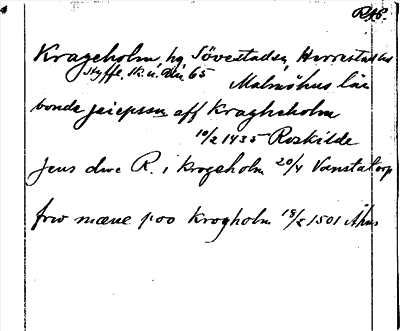 RAS.
Krageholm, hg Sövestads sn, Herrestads hd
Styffe, Sk. u. 65
Malmöhus län
bonde jeiepsson aff Kragheholm
10/2 1435 Rozkilde
Jens due R. i krogeholm 20/4 Vanstatorp
frw mæne poo krogholm 18/2 1501 Åhus